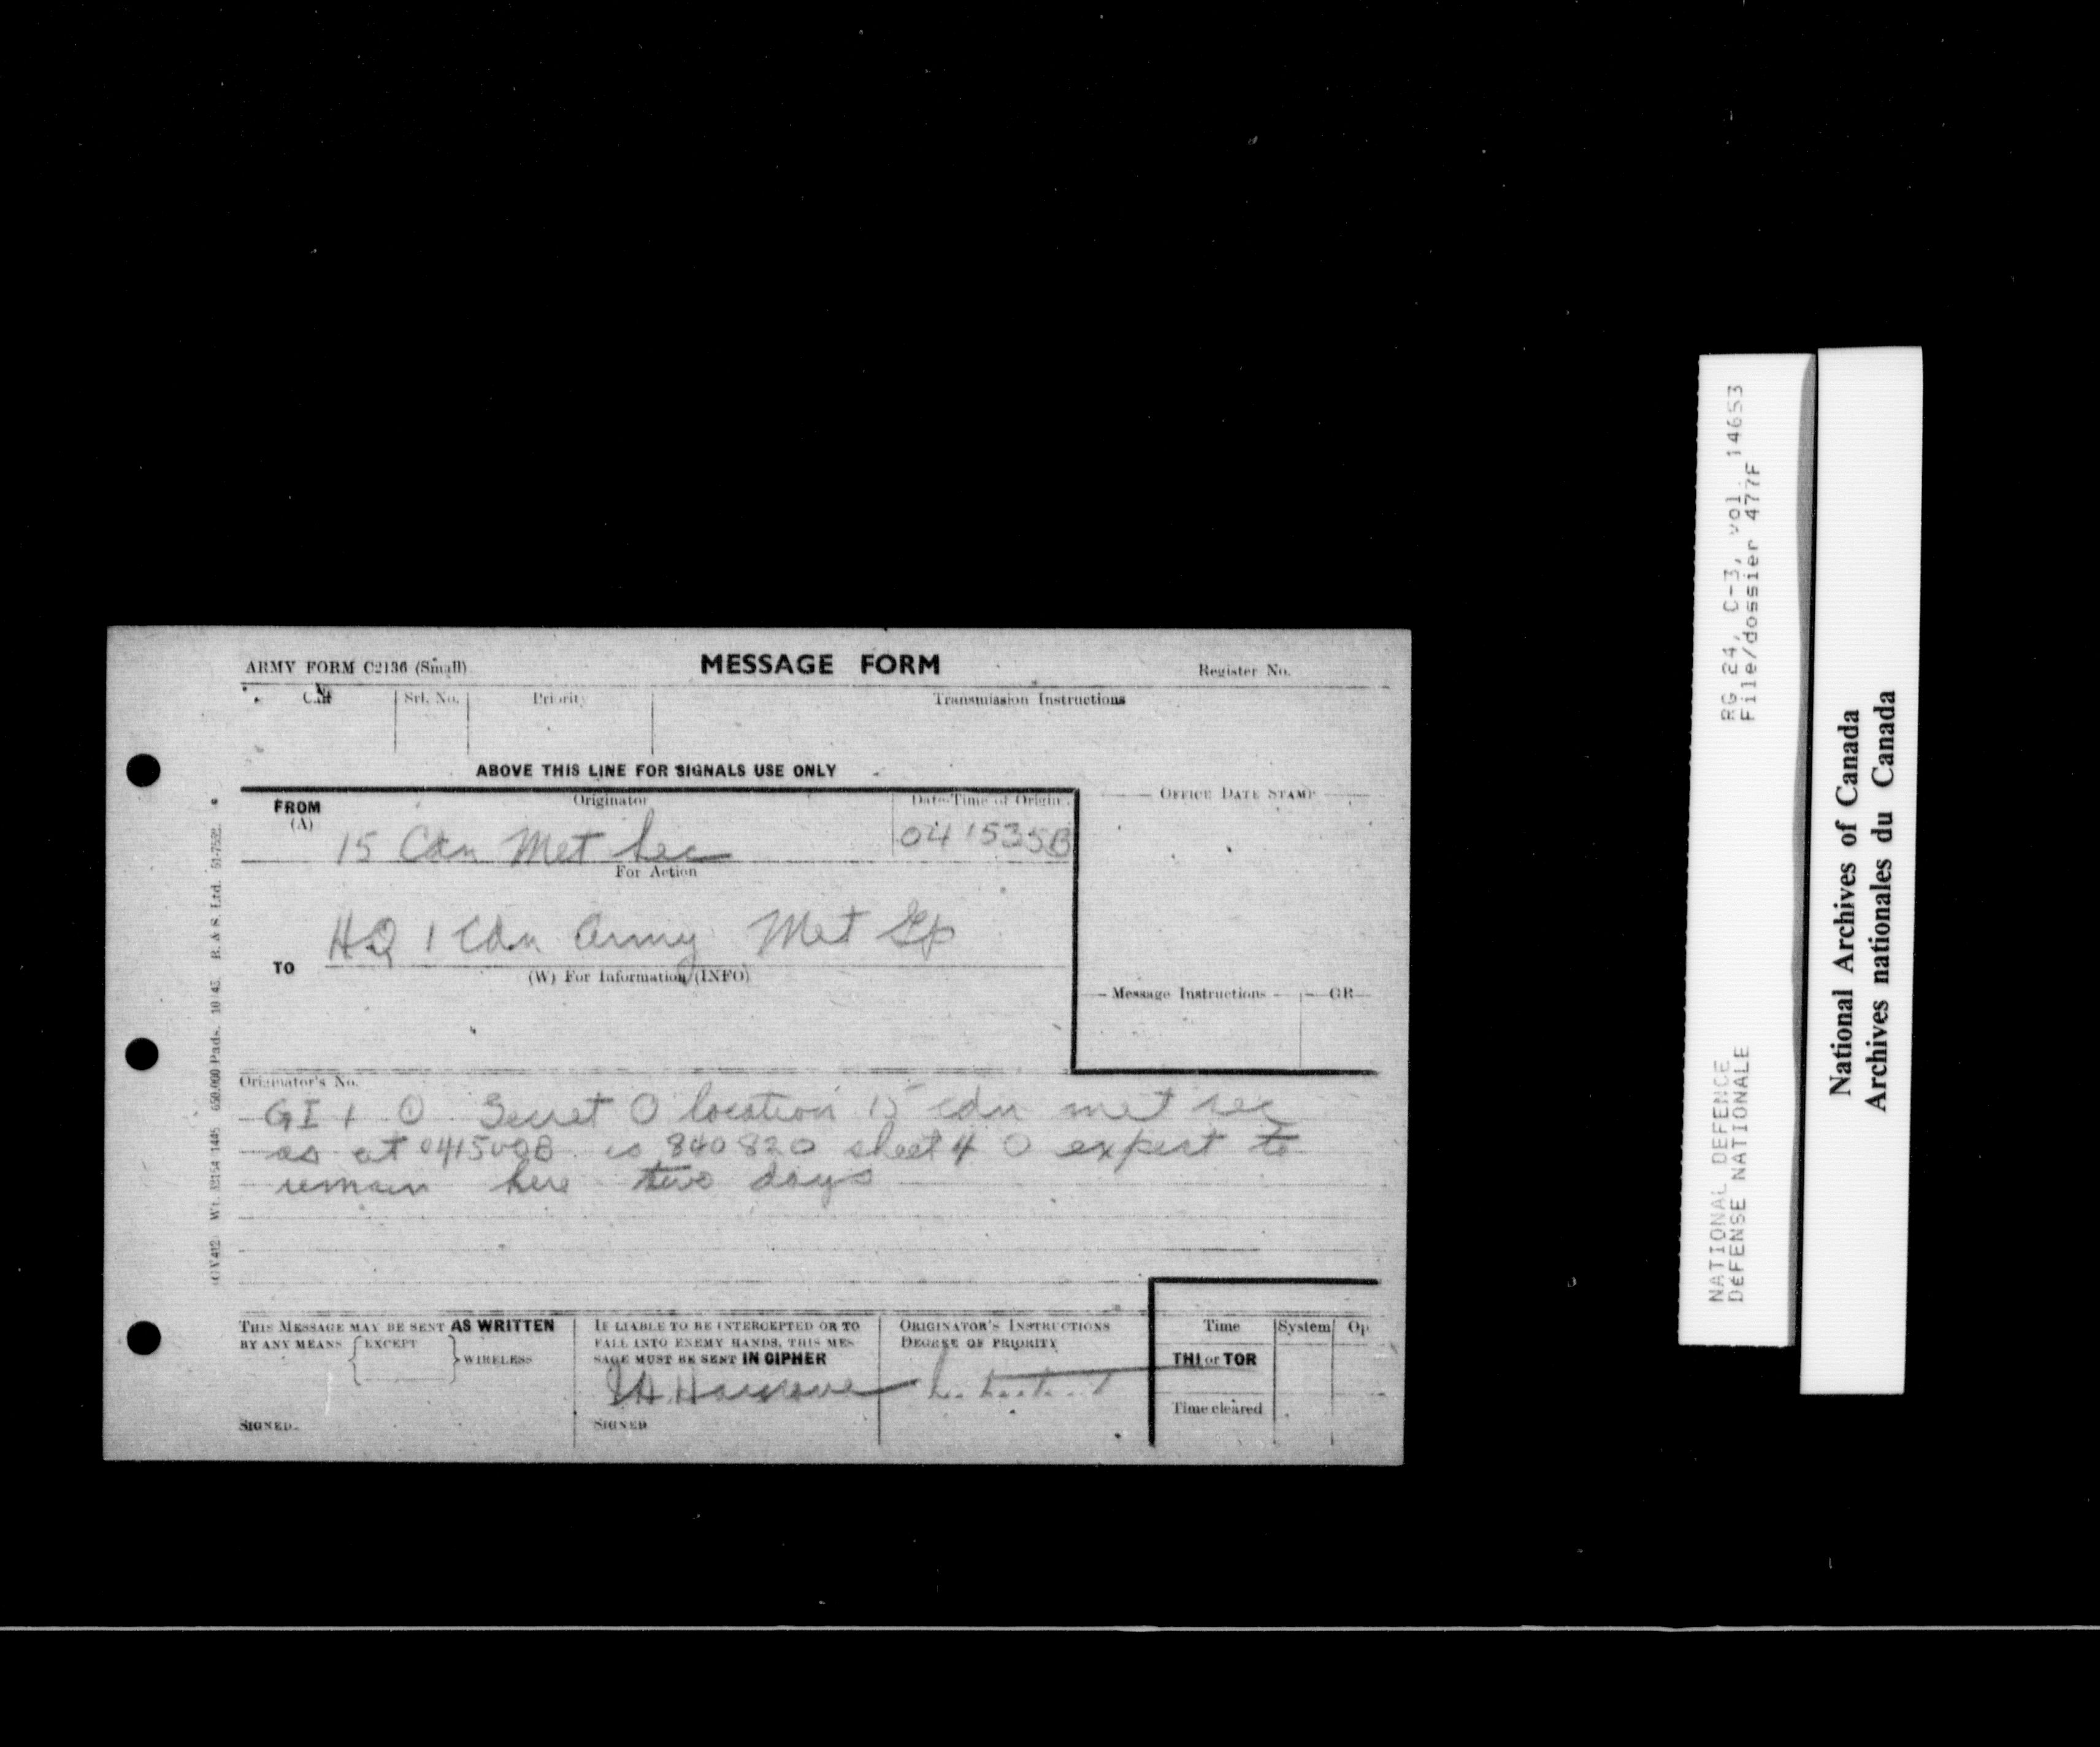 ARMY FORM C2136 (Small)
MESSAGE FORM
Register No.
Call Srl. No. Priority Transmission Instructions
ABOVE THIS LINE FOR SIGNALS USE ONLY
FROM (A)
Originator
Date-Time of Origin
OFFICE DATE STAMP
15 Cdn Met Sec
041535B
For Action
HQ 1 Cdn Army Met Gp
TO
(W) For Information (INFO)
Message Instructions GR
Originator's No.
GI 1 O Secret O location 15 cdn met sec
as at 041500B is 840820 sheet 4 O expect to
remain here two days
THIS MESSAGE MAY BE SENT AS WRITTEN
BY ANY MEANS EXCEPT WIRELESS
SIGNED.
IF LIABLE TO BE INTERCEPTED OR TO
FALL INTO ENEMY HANDS, THIS MES
SAGE MUST BE SENT IN CIPHER
SIGNED
ORIGINATOR'S INSTRUCTIONS
DEGREE OF PRIORITY
Time System Op
THI or TOR
Time cleared
Wt. 650,000 Pads. 10/43. B. & S. Ltd. 51-7552.
RG 24, C-3, vol. 14653
File/dossier 477F
NATIONAL DEFENCE
DÉFENSE NATIONALE
National Archives of Canada
Archives nationales du Canada